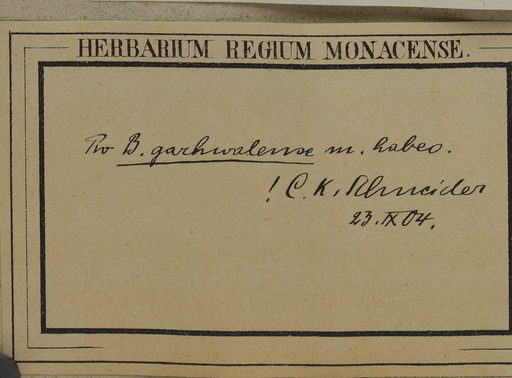 HERBARIUM REGIUM MONACENSE.
Pro B. garhwalense m. habeo.
! C. K. Schneider
23. IX 04.